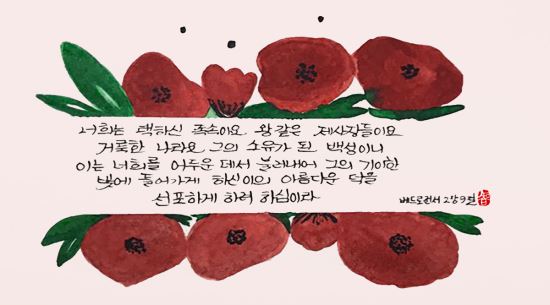 너희는 택하신 족속이요 왕같은 제사장들이요
거룩한 나라요 그의 소유가 된 백성이니
이는 너희를 어두운 데서 불러내어 그의 기이한
빛에 들어가게 하신이의 아름다운 덕을
선포하게 하려 하심이라
베드로전서 2장9절